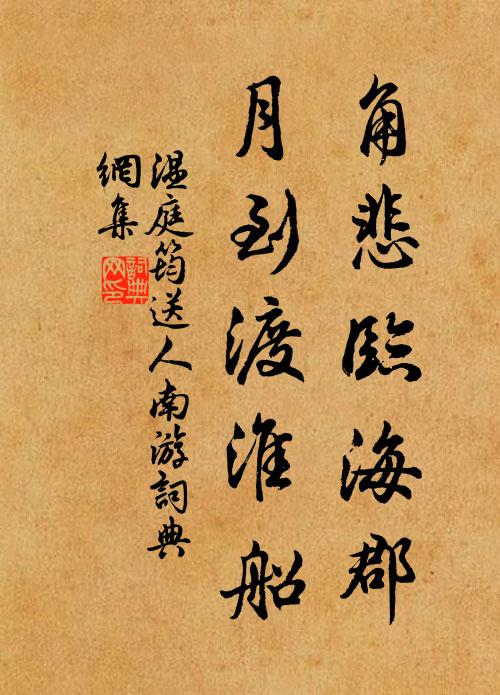 角悲臨海郡
月到渡淮船
溫庭筠送人南游詞典
網集
詞典
网印